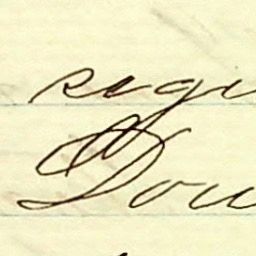 regu
Dou